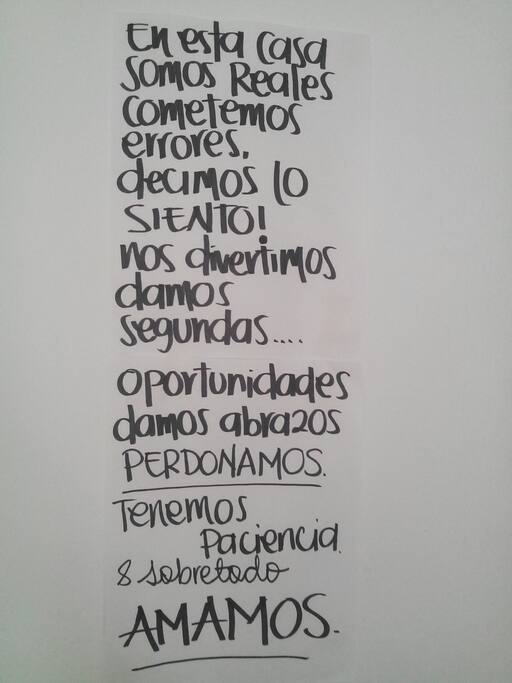 En esta casa
somos Reales
cometemos
errores.
decimos lo
SIENTO!
nos divertimos
damos
segundas....
oportunidades
damos abrazos
PERDONAMOS.
Tenemos
Paciencia.
& sobretodo
AMAMOS.